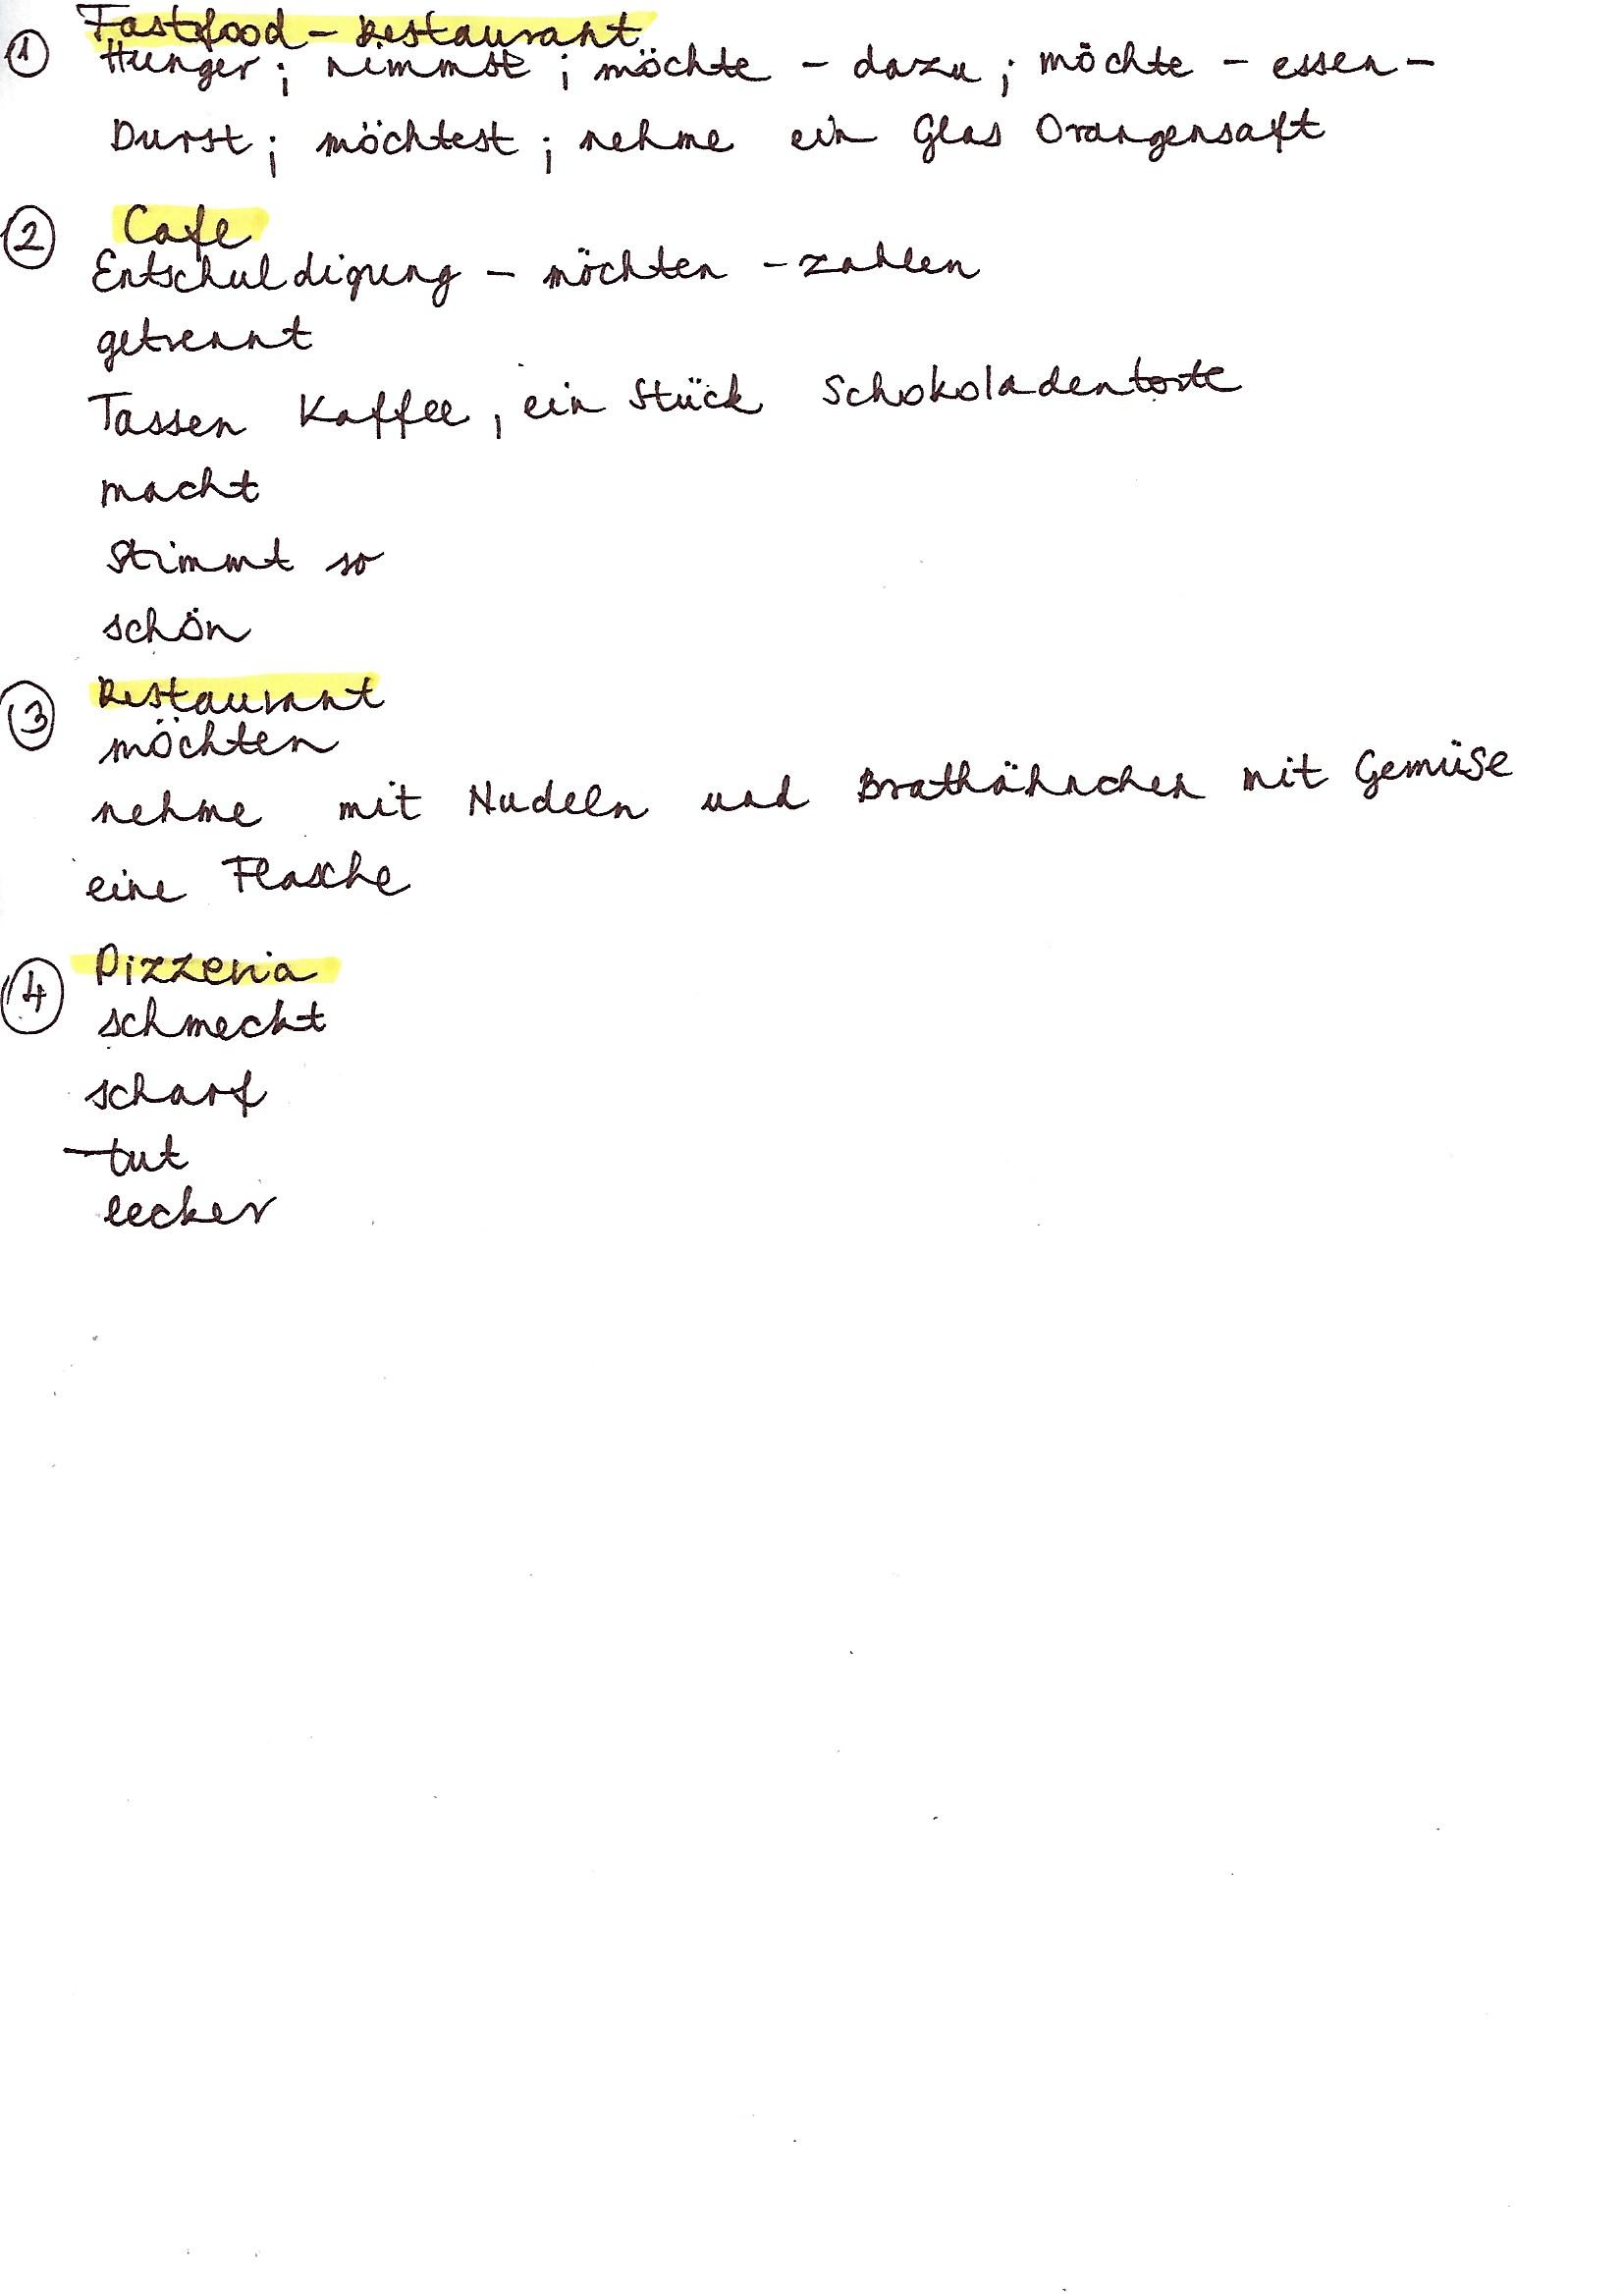 ① Fastfood - Restaurant
Hunger ; nimmst ; möchte - dazu ; möchte - essen -
Durst ; möchtest ; nehme ein Glas Orangensaft
② Cafe
Entschuldigung - möchten - zahlen
getrennt
Tassen Kaffee, ein Stück Schokoladentorte
macht
Stimmt so
schön
③ Restaurant
möchten
nehme mit Nudeln und Brathähnchen mit Gemüse
eine Flasche
④ Pizzeria
schmeckt
scharf
tut
lecker